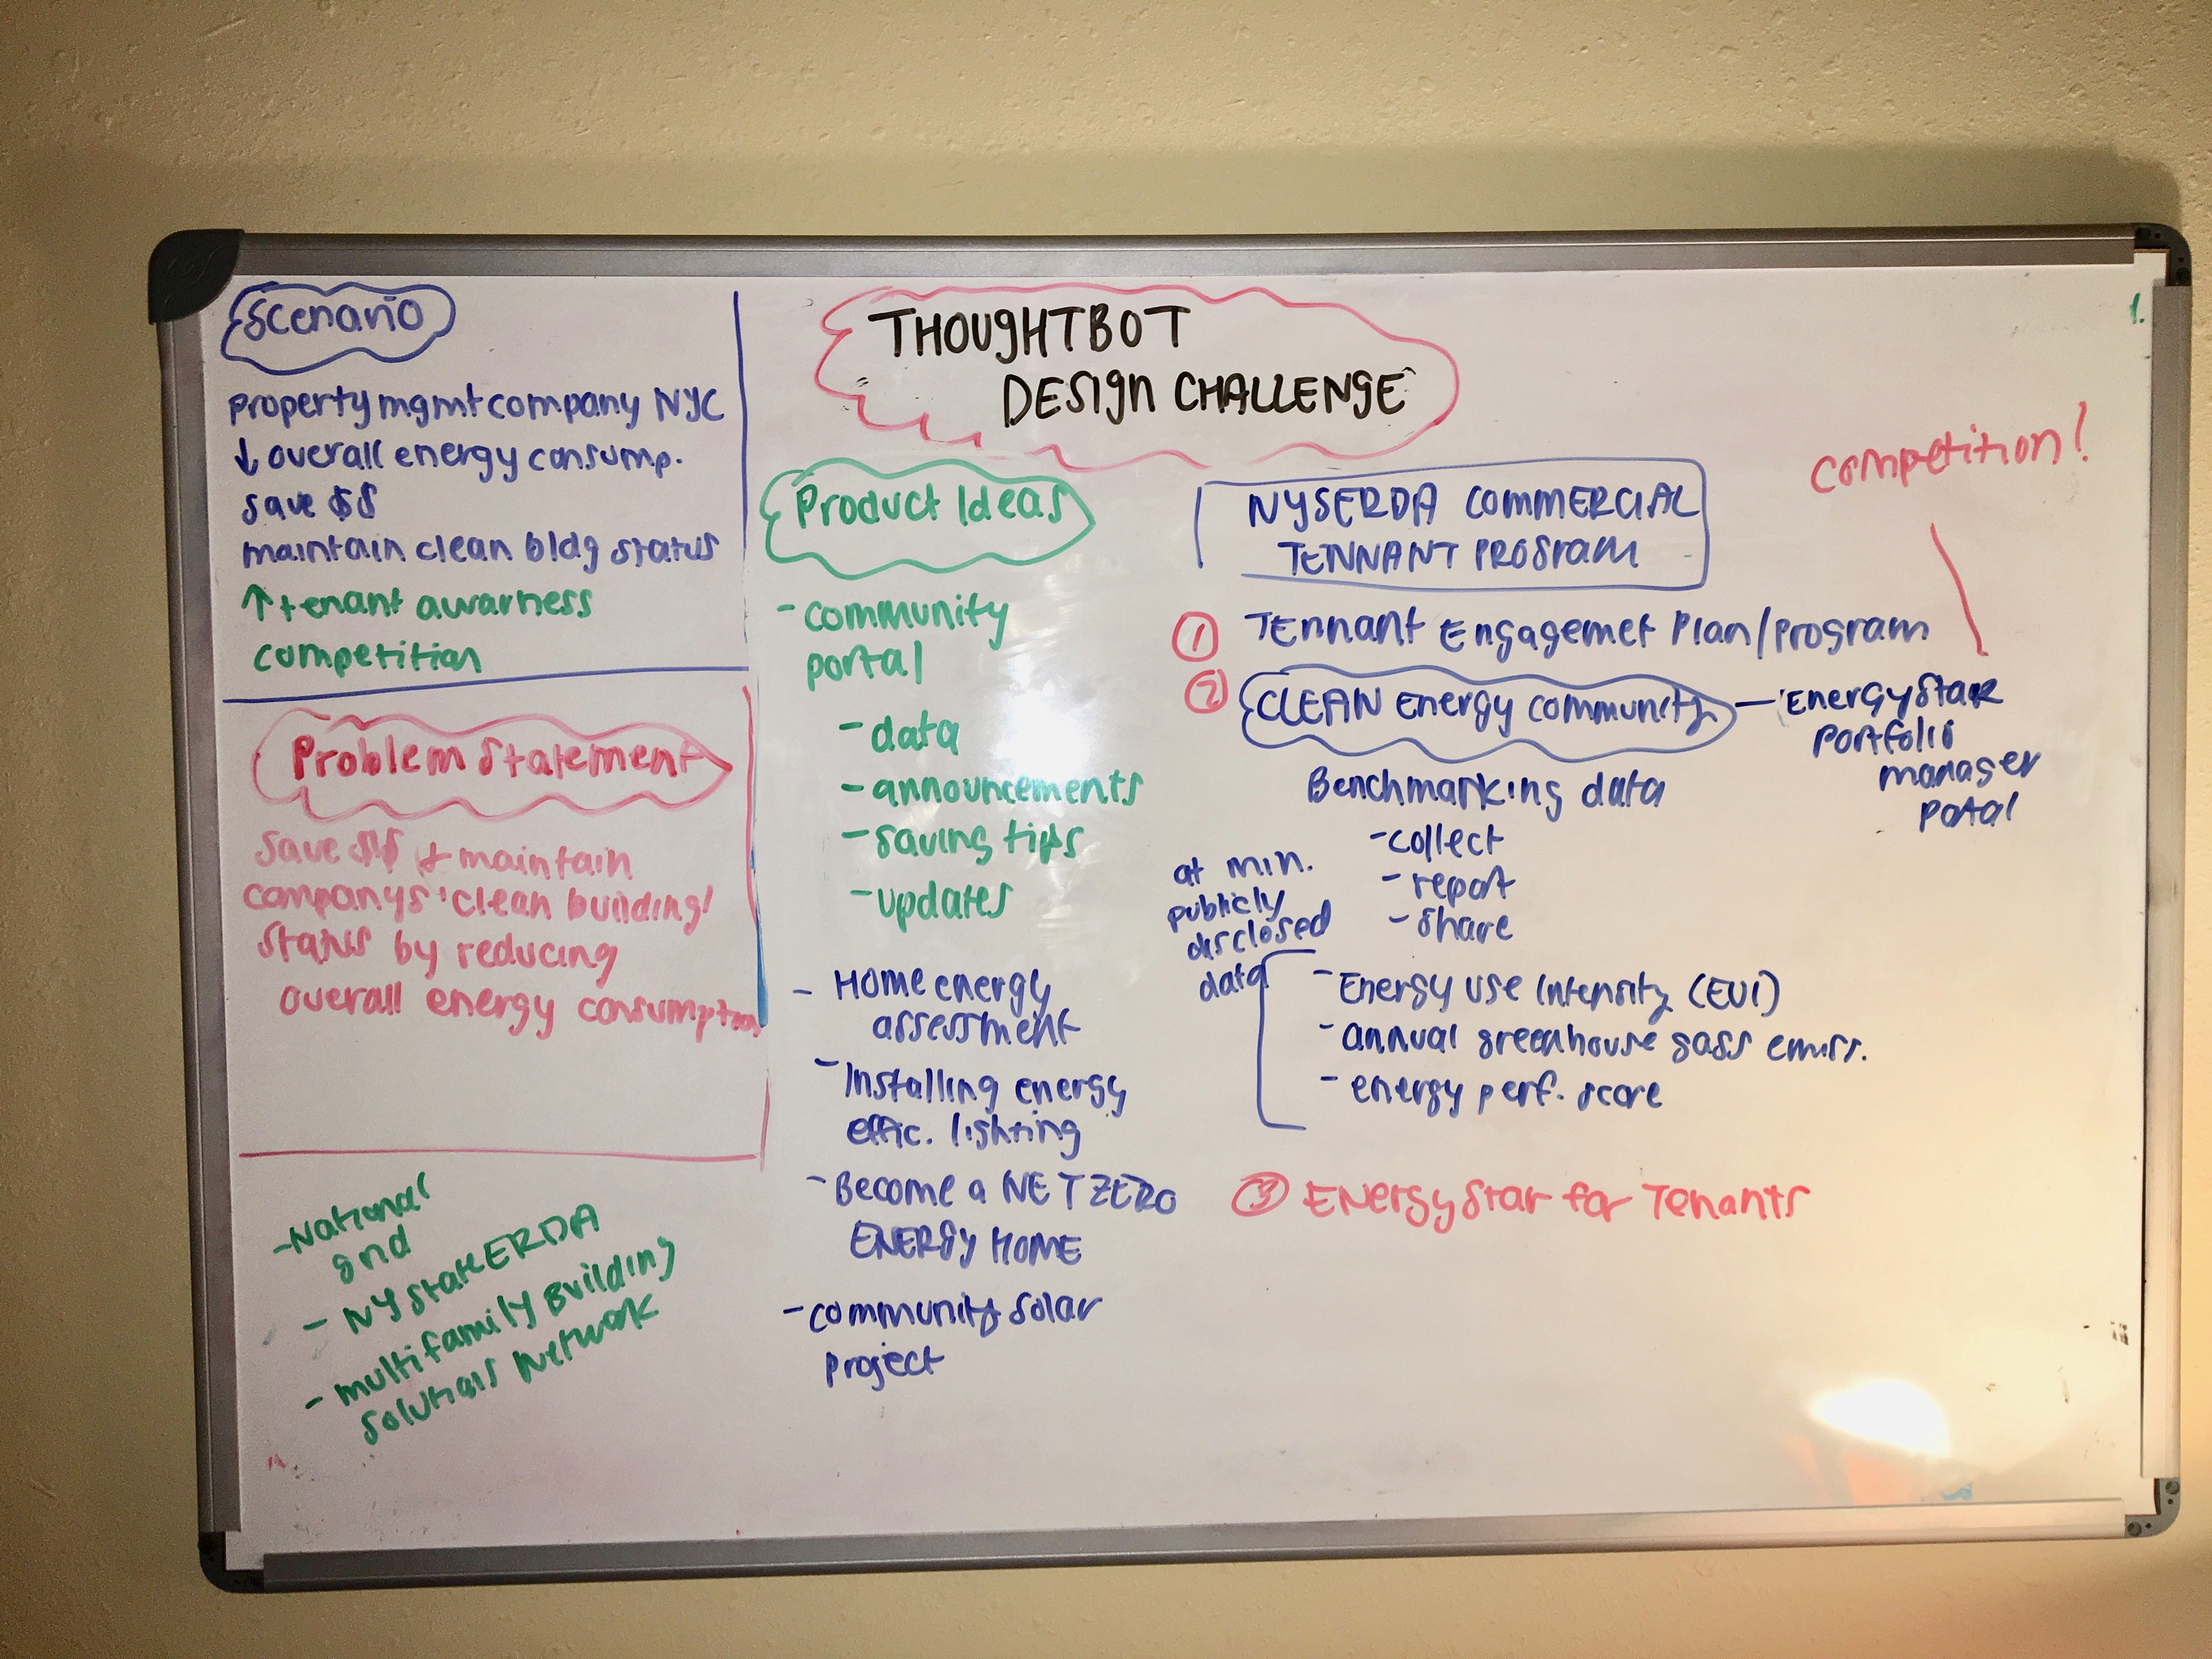 Scenario
property mgmt company NYC
↓ overall energy consump.
save $$
maintain clean bldg status
↑ tenant awarness
competition
Problem Statement
Save $$ + maintain
companys 'clean building'
status by reducing
overall energy consumption
- National
grid
- NY State ERDA
- multifamily Building
Solutions Network
THOUGHTBOT
DESIGN CHALLENGE
1.
Product Ideas
- community
portal
- data
- announcements
- saving tips
- updates
- Home energy
assessment
- Installing energy
effic. lighting
- Become a NET ZERO
ENERGY HOME
- community solar
project
NYSERDA COMMERCIAL
TENNANT PROGRAM
competition!
① TEnnant Engagemet Plan/program
② CLEAN Energy community — EnergyStar
portfolio
manager
potal
Benchmarking data
- collect
- report
- share
at min.
publicly
disclosed
data
- Energy use Intensity (EUI)
- annual greenhouse gass emiss.
- energy perf. score
③ ENergy Star for Tenants